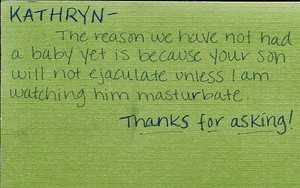 KATHRYN-
The reason we have not had
a baby yet is because your son
will not ejaculate unless I am
watching him masturbate.
Thanks for asking!